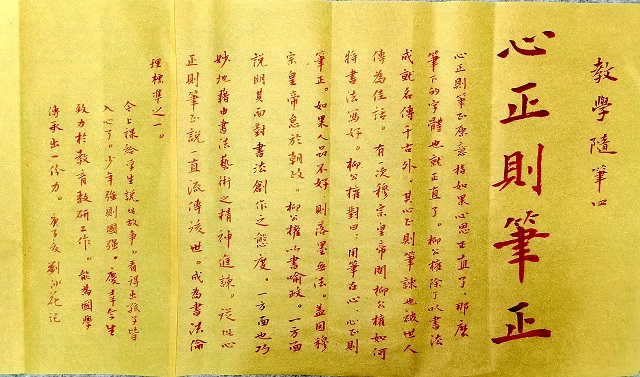 教學隨筆四
心正則筆正
心正則筆正原意指如果心思正直了，那麼
筆下的字體也就正直了。柳公權除了以書法
成就名傳千古外，其心正則筆諫也被世人
傳為佳話。有一次穆宗皇帝問柳公權如何
將書法寫好。柳公權對曰，用筆在心，心正則
筆正。如果人品不好，則落墨無法。蓋因穆
宗皇帝怠於朝政。柳公權以書喻政。一方面
說明其面對書法創作之態度，一方面也巧
妙地藉由書法藝術之精神進諫。從此心
正則筆正說一直流傳後世。成為書法倫
理標準之一。
今上課給學生說此故事。看得出孩子皆
入心了。少年強則國強。慶幸今生
致力於教育教研工作。能為國學
傳承出一份力。庚子亥 劉沙花記